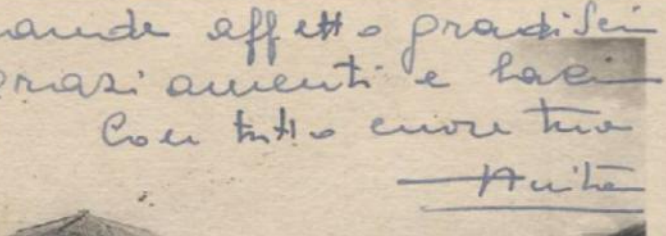 ande affetto gradisci
graziamenti e baci
Con tutto cuore tua
Anita